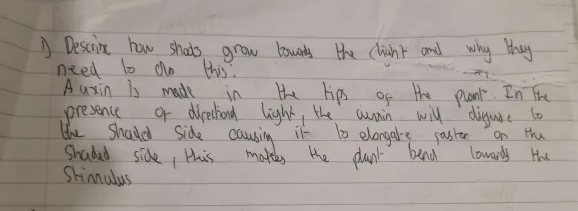 1) Describe how shoots grow towards the light and why they
need to do this.
Auxin is made in the tips of the plant. In the
presence of directional light, the auxin will difuse to
the shaded side causing it to elongate faster on the
shaded side, this makes the plant bend towards the
Stimulus